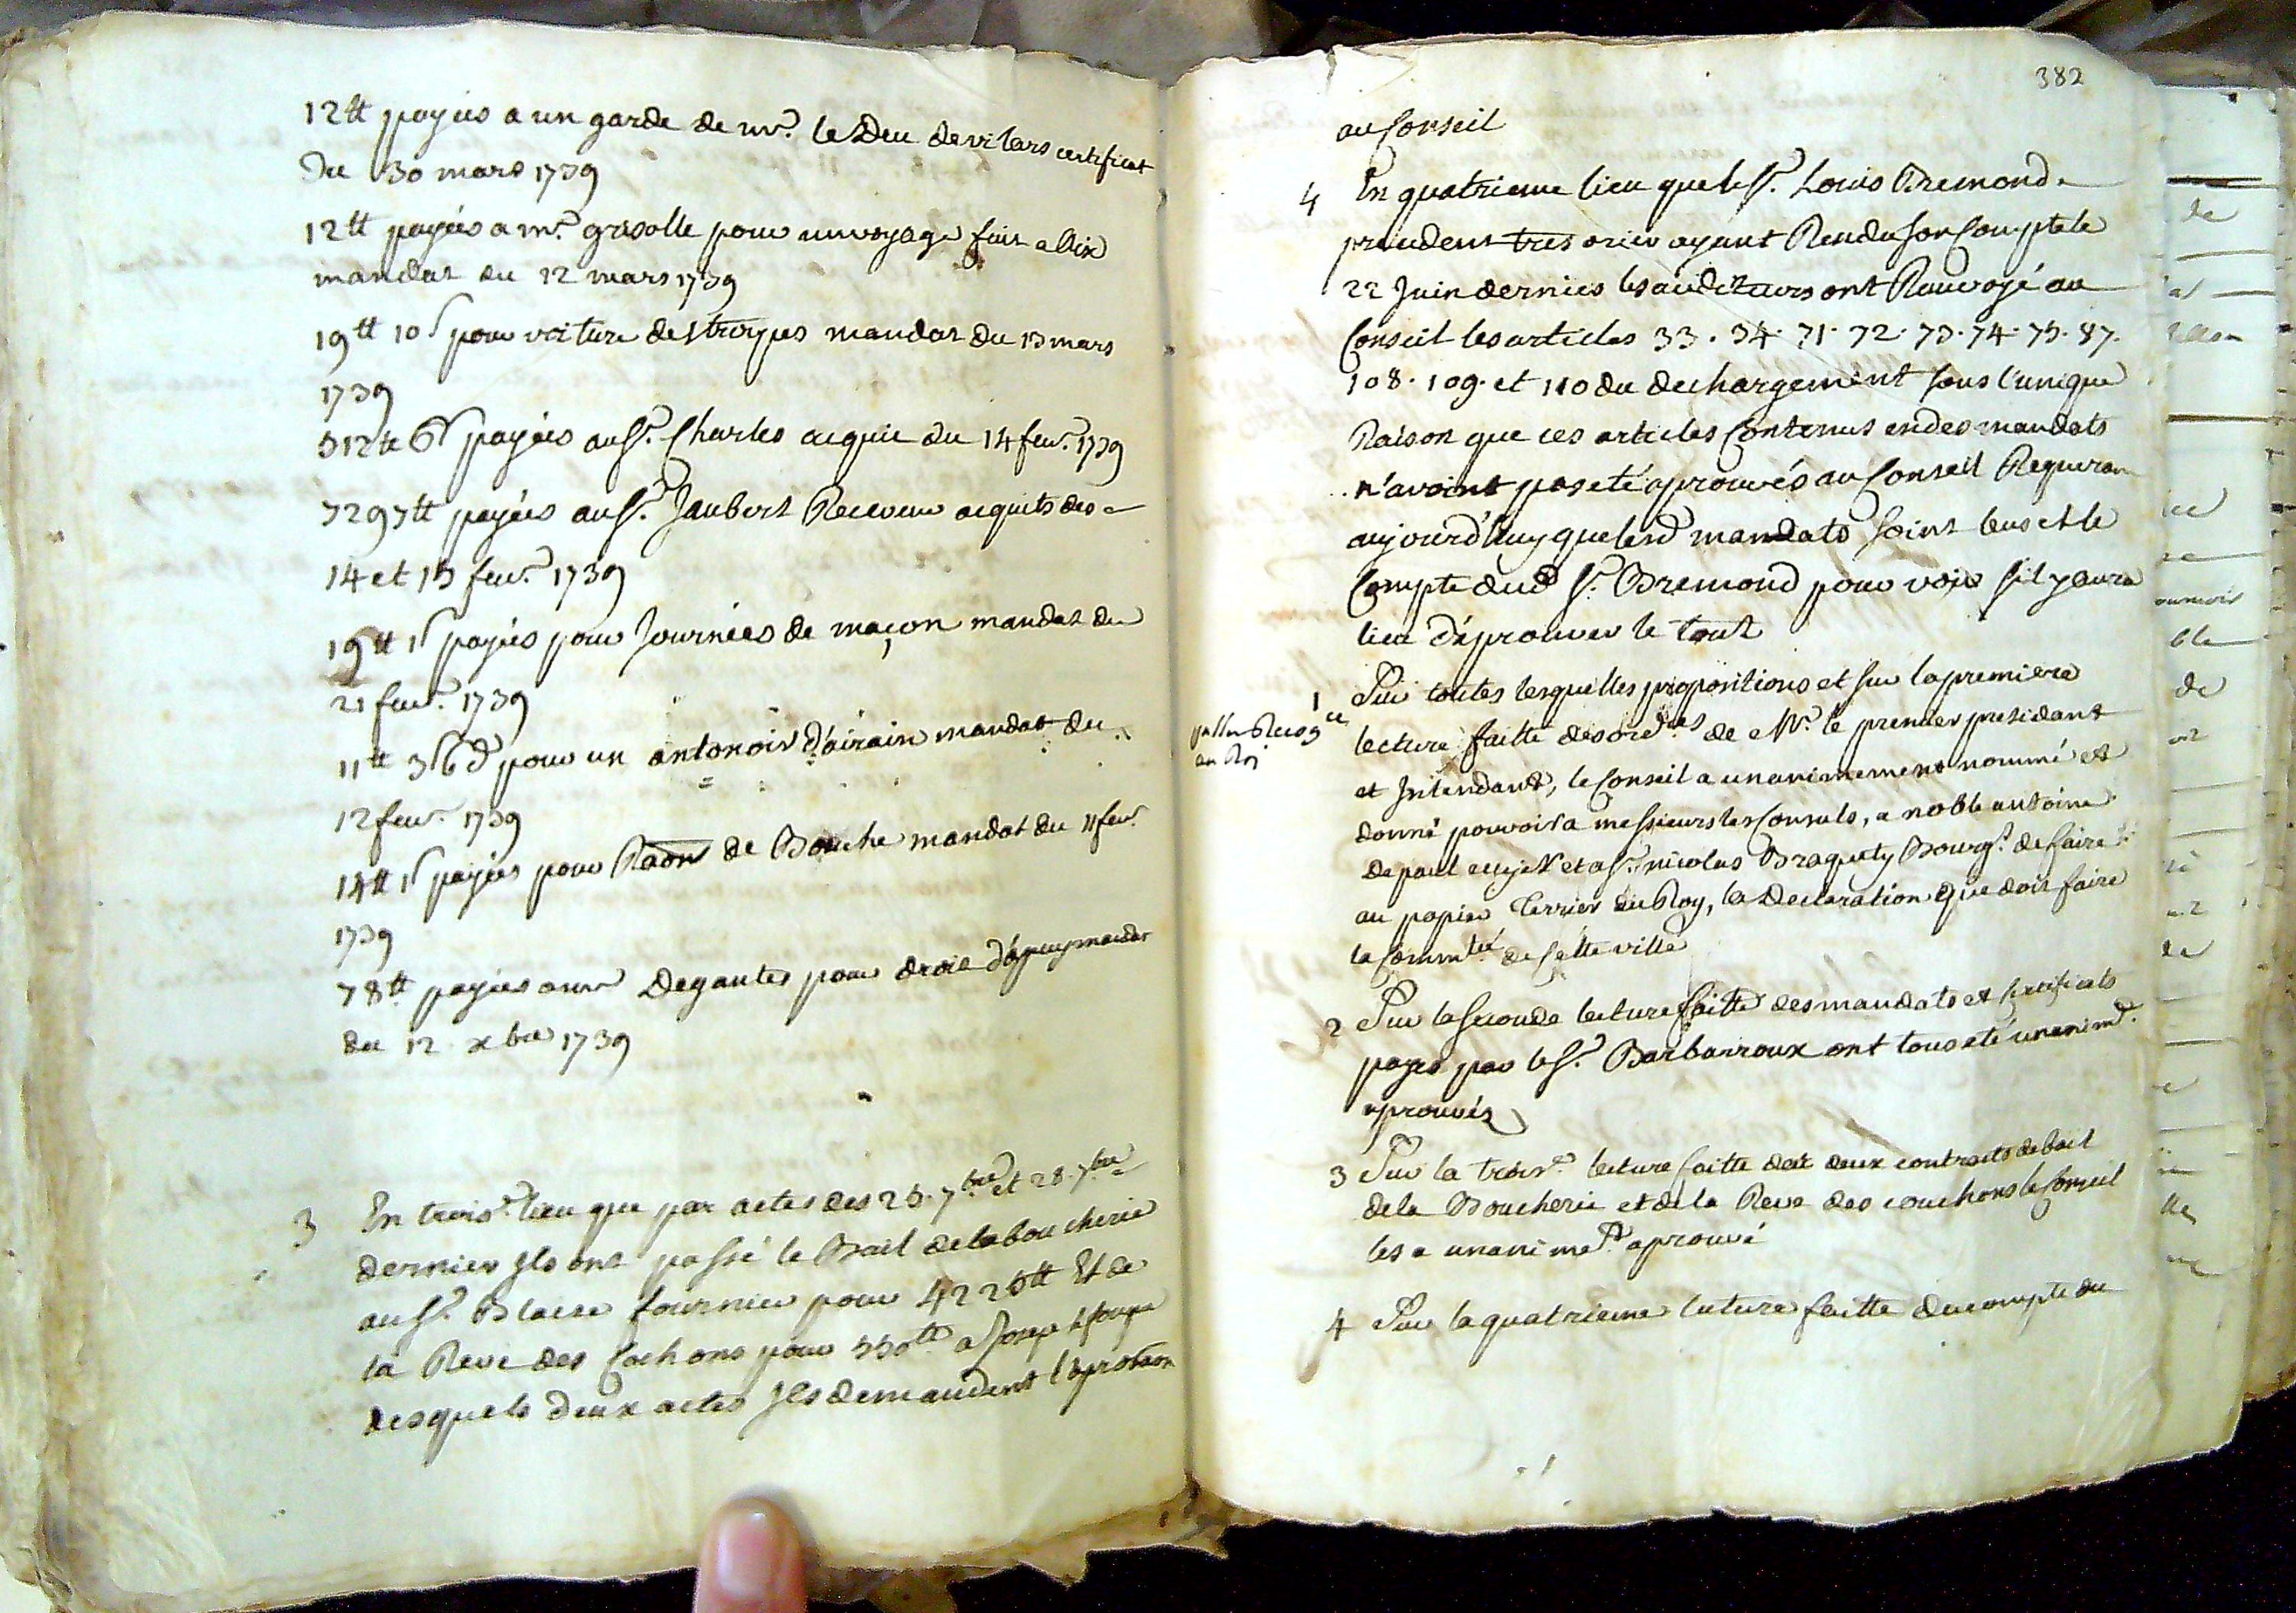 12tt payées a un garde de mr. le Duc de vilars certificat
Du 30 mars 1739
12tt payées a mr. grisolle pour un voyage fait a Aix
mandat du 12 mars 1739
19tt 10s pour voiture des troupes mandat du 13 mars
1739
312tt 6s payées au sr. Charles acquit du 14 fevr. 1739
7297tt payées au sr. Jaubert Receveur acquits des
14 et 15 fevr. 1739
19tt 1s payées pour Journées de maçon mandat du
21 fevr. 1739
11tt 3s 6d pour un antonoir d'airain mandat du
12 fevr. 1739
14tt 1s payées pour Raõn de Bouche mandat du 11 fevr.
1739
78tt payées a mr Degantes pour droit mandat
du 12 xbre 1739
3 En trois.e lieu que par actes des 25. 7bre et 28. 7bre
dernier Ils ont passé le Bail de la boucherie
au sr. Blaise fournier pour 4225tt Et de
la Reve des Cochons pour 550tt a Joseph
desquels deux actes Ils demandent l'aprobaõn
382
au Conseil
4 En quatrieme lieu que le sr. Louis Bremond
precedent tresorier ayant Rendu son Compte le
22 Juin dernier les auditeurs ont Renvoyé au
Conseil les articles 33. 34. 71. 72. 73. 74. 75. 87.
108. 109. et 110 du dechargement sous l'unique
Raison que ces articles Contenus en des mandats
n'avoint pas eté aprouvés au Conseil Requeran
aujourd'huy que lesd mandats soint leus et le
Compte dud sr. Bremond pour voir s'il y aura
lieu d'aprouver le tout
1 Sur toutes lesquelles propositions et sur la premiere
pour la Recogce
au Roy
lecture faitte des ord.es de Mr. le premier presidant
et Intendant, le Conseil a unanimement nommé et
donné pouvoir a messieurs les Consuls, a noble antoine
de paul ecuyer et a sr. nicolas Braquety Bourgs. de faire
au papier Terrier du Roy, la Declaration que doit faire
la Commté. de Cette ville
2 Sur la seconde lecture faitte des mandats et certificats
payés par le sr. Barbarroux ont tous eté unanimt.
aprouvés
3 Sur la trois.e lecture faitte des deux contracts de bail
de la Boucherie et de la Reve des couchons le Conseil
les a unanimet. aprouvé
4 Sur la quatrieme lecture faitte du compte du